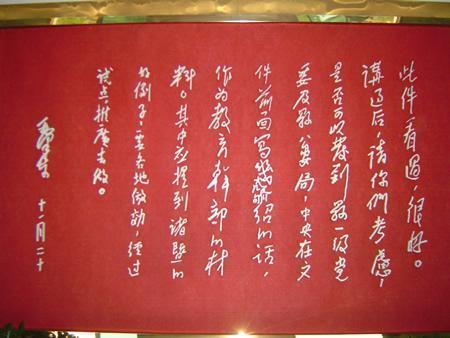 此件看過，很好。
講过后，請你們考慮，
是否可以發到县一級党
委及县公安局，中央在文
件前面寫几句介紹的話，
作为教育幹部的材
料。其中应提到諸暨的
好例子，要各地仿効，经过
试点，推廣去做。
毛泽东
十一月二十